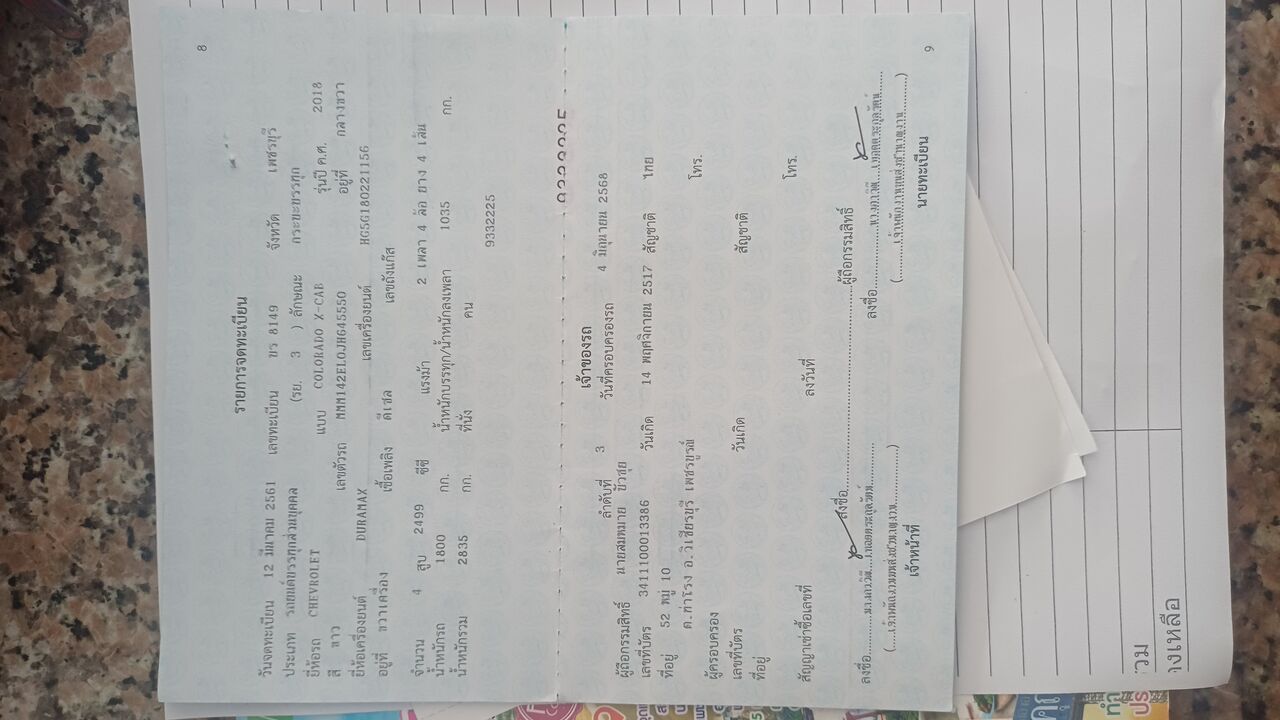 8
รายการจดทะเบียน
วันจดทะเบียน 12 มีนาคม 2561 เลขทะเบียน ขร 8149 จังหวัด เพชรบุรี
ประเภท รถยนต์บรรทุกส่วนบุคคล (รย. 3 ) ลักษณะ กระบะบรรทุก
ยี่ห้อรถ CHEVROLET แบบ COLORADO X-CAB รุ่นปี ค.ศ. 2018
สี ขาว เลขตัวรถ อยู่ที่ กลางขวา
ยี่ห้อเครื่องยนต์ DURAMAX เลขเครื่องยนต์ HG5G180221156
อยู่ที่ ขวาเครื่อง เชื้อเพลิง ดีเซล เลขถังแก๊ส
จำนวน 4 สูบ 2499 ซีซี แรงม้า 2 เพลา 4 ล้อ ยาง 4 เส้น
น้ำหนักรถ 1800 กก. น้ำหนักบรรทุก/น้ำหนักลงเพลา 1035 กก.
น้ำหนักรวม 2835 กก. ที่นั่ง คน
9332225
เจ้าของรถ
ลำดับที่ 3 วันที่ครอบครองรถ 4 มิถุนายน 2568
ผู้ถือกรรมสิทธิ์ นายสมหมาย บัวสุย
เลขที่บัตร 3411100013386 วันเกิด 14 พฤศจิกายน 2517 สัญชาติ ไทย
ที่อยู่ 52 หมู่ 10
ต.ท่าโรง อ.วิเชียรบุรี เพชรบูรณ์ โทร.
ผู้ครอบครอง
เลขที่บัตร วันเกิด สัญชาติ
ที่อยู่
โทร.
สัญญาเช่าซื้อเลขที่ ลงวันที่
ลงชื่อ ผู้ถือกรรมสิทธิ์
ลงชื่อ ลงชื่อ
เจ้าหน้าที่ นายทะเบียน
9